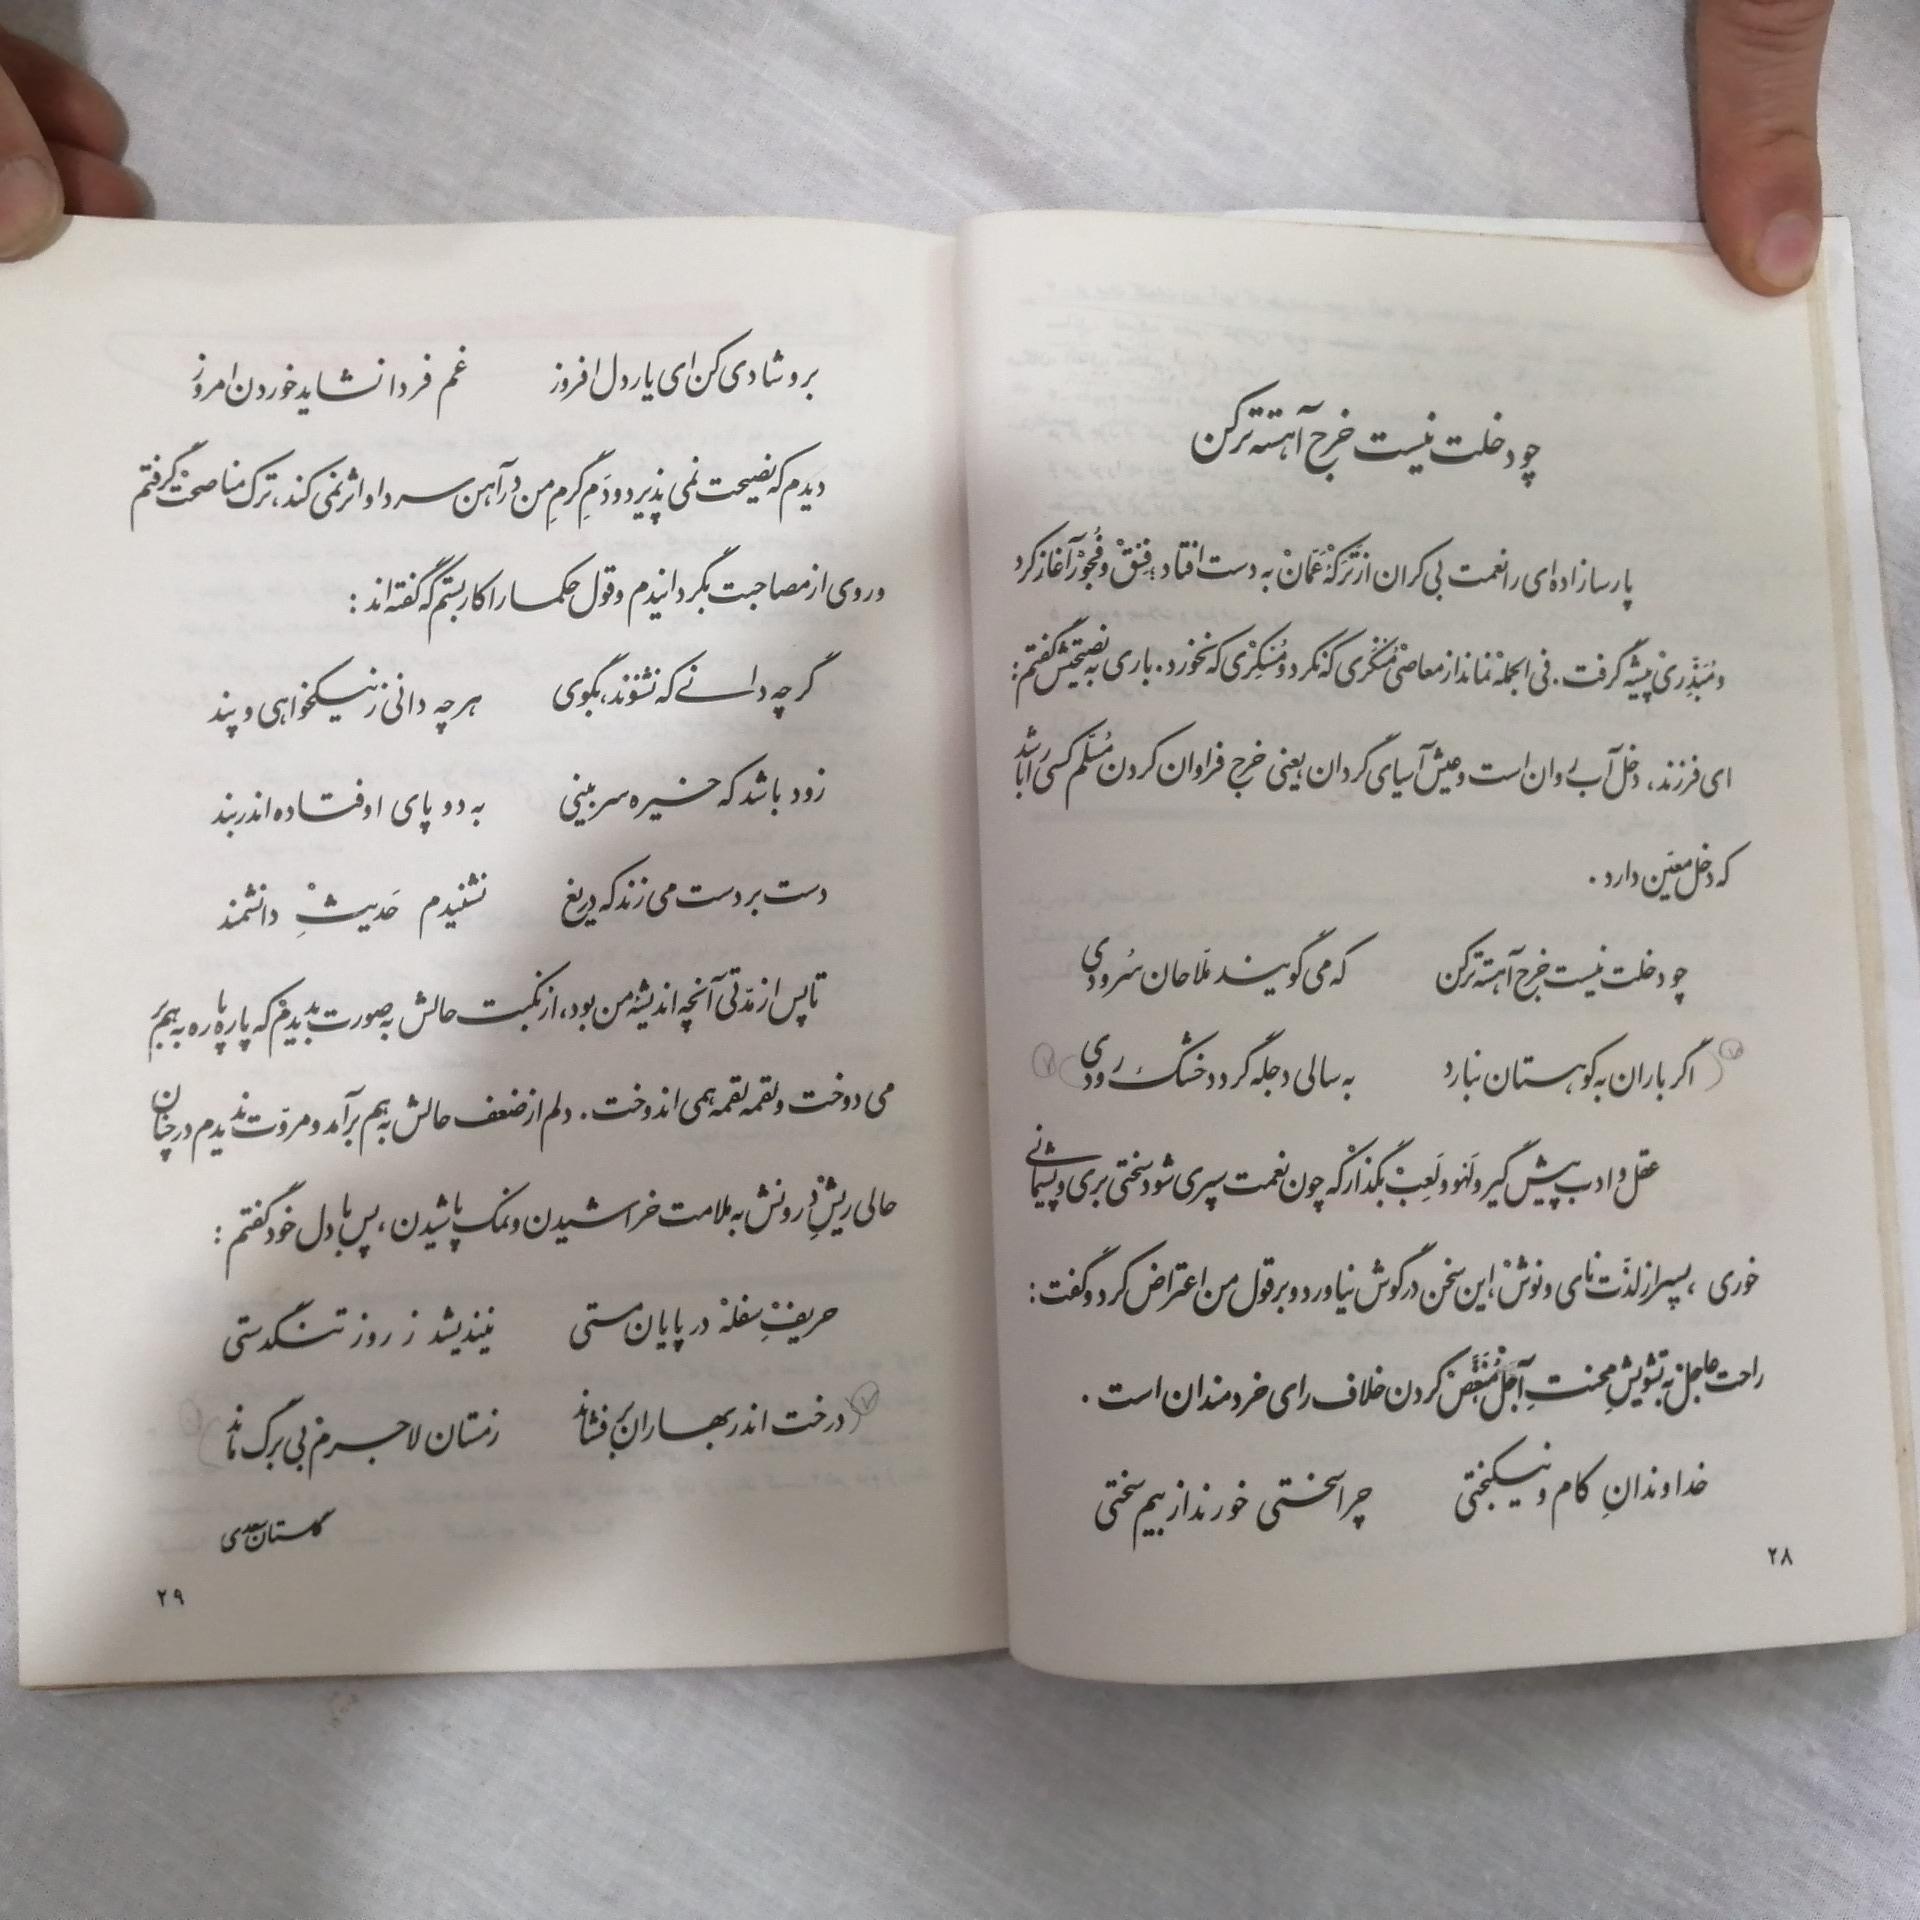 چو دخلت نیست خرج آهسته ترکن
پارسازاده ای را نعمت بی کران از ترکهٔ عمان به دست افتاد، فسق و فجور آغاز کرد
و مبذّری پیشه گرفت. فی الجمله نماند از معاصی منکری که نکرد و مسکری که نخورد. باری به نصیحتش گفتم:
ای فرزند، دخل آب روان است و عیش آسیای گردان، یعنی خرج فراوان کردن مسلّم کسی را باشد
که دخل معیّن دارد.
چو دخلت نیست خرج آهسته ترکن که می گویند ملّاحان سرودی
اگر باران به کوهستان نبارد به سالی دجله گردد خشک رودی
عقل و ادب پیش گیر و لهو و لعب بگذار که چون نعمت سپری شود سختی بری و پشیمانی
خوری، پسر از لذّت نای و نوش، این سخن در گوش نیاورد و بر قول من اعتراض کرد و گفت:
راحت عاجل به تشویش محنت آجل منغّص کردن خلاف رای خردمندان است.
خداوندانِ کام و نیکبختی چرا سختی خورند از بیم سختی
۲۸
برو شادی کن ای یار دل افروز غم فردا نشاید خوردن امروز
دیدم که نصیحت نمی پذیرد و دَمِ گرمِ من در آهن سرد او اثر نمی کند، ترک مناصحت گرفتم
و روی از مصاحبت بگردانیدم و قول حکما را کار بستم که گفته اند:
گر چه دانی که نشنوند، بگوی هر چه دانی ز نیکخواهی و پند
زود باشد که خیره سر بینی به دو پای اوفتاده اندر بند
دست بر دست می زند که دریغ نشنیدم حَدیثِ دانشمند
تا پس از مدّتی آنچه اندیشهٔ من بود، از نکبت حالش به صورت بدیدم که پاره پاره به هم بر
می دوخت و لقمه لقمه همی اندوخت. دلم از ضعف حالش به هم برآمد و مروّت ندیدم در چنان
حالی ریشِ درونش به ملامت خراشیدن و نمک پاشیدن، پس با دل خود گفتم:
حریفِ سفله در پایان مستی نیندیشد ز روز تنگدستی
درخت اندر بهاران بر فشاند زمستان لاجرم بی برگ ماند
گلستان سعدی
۲۹